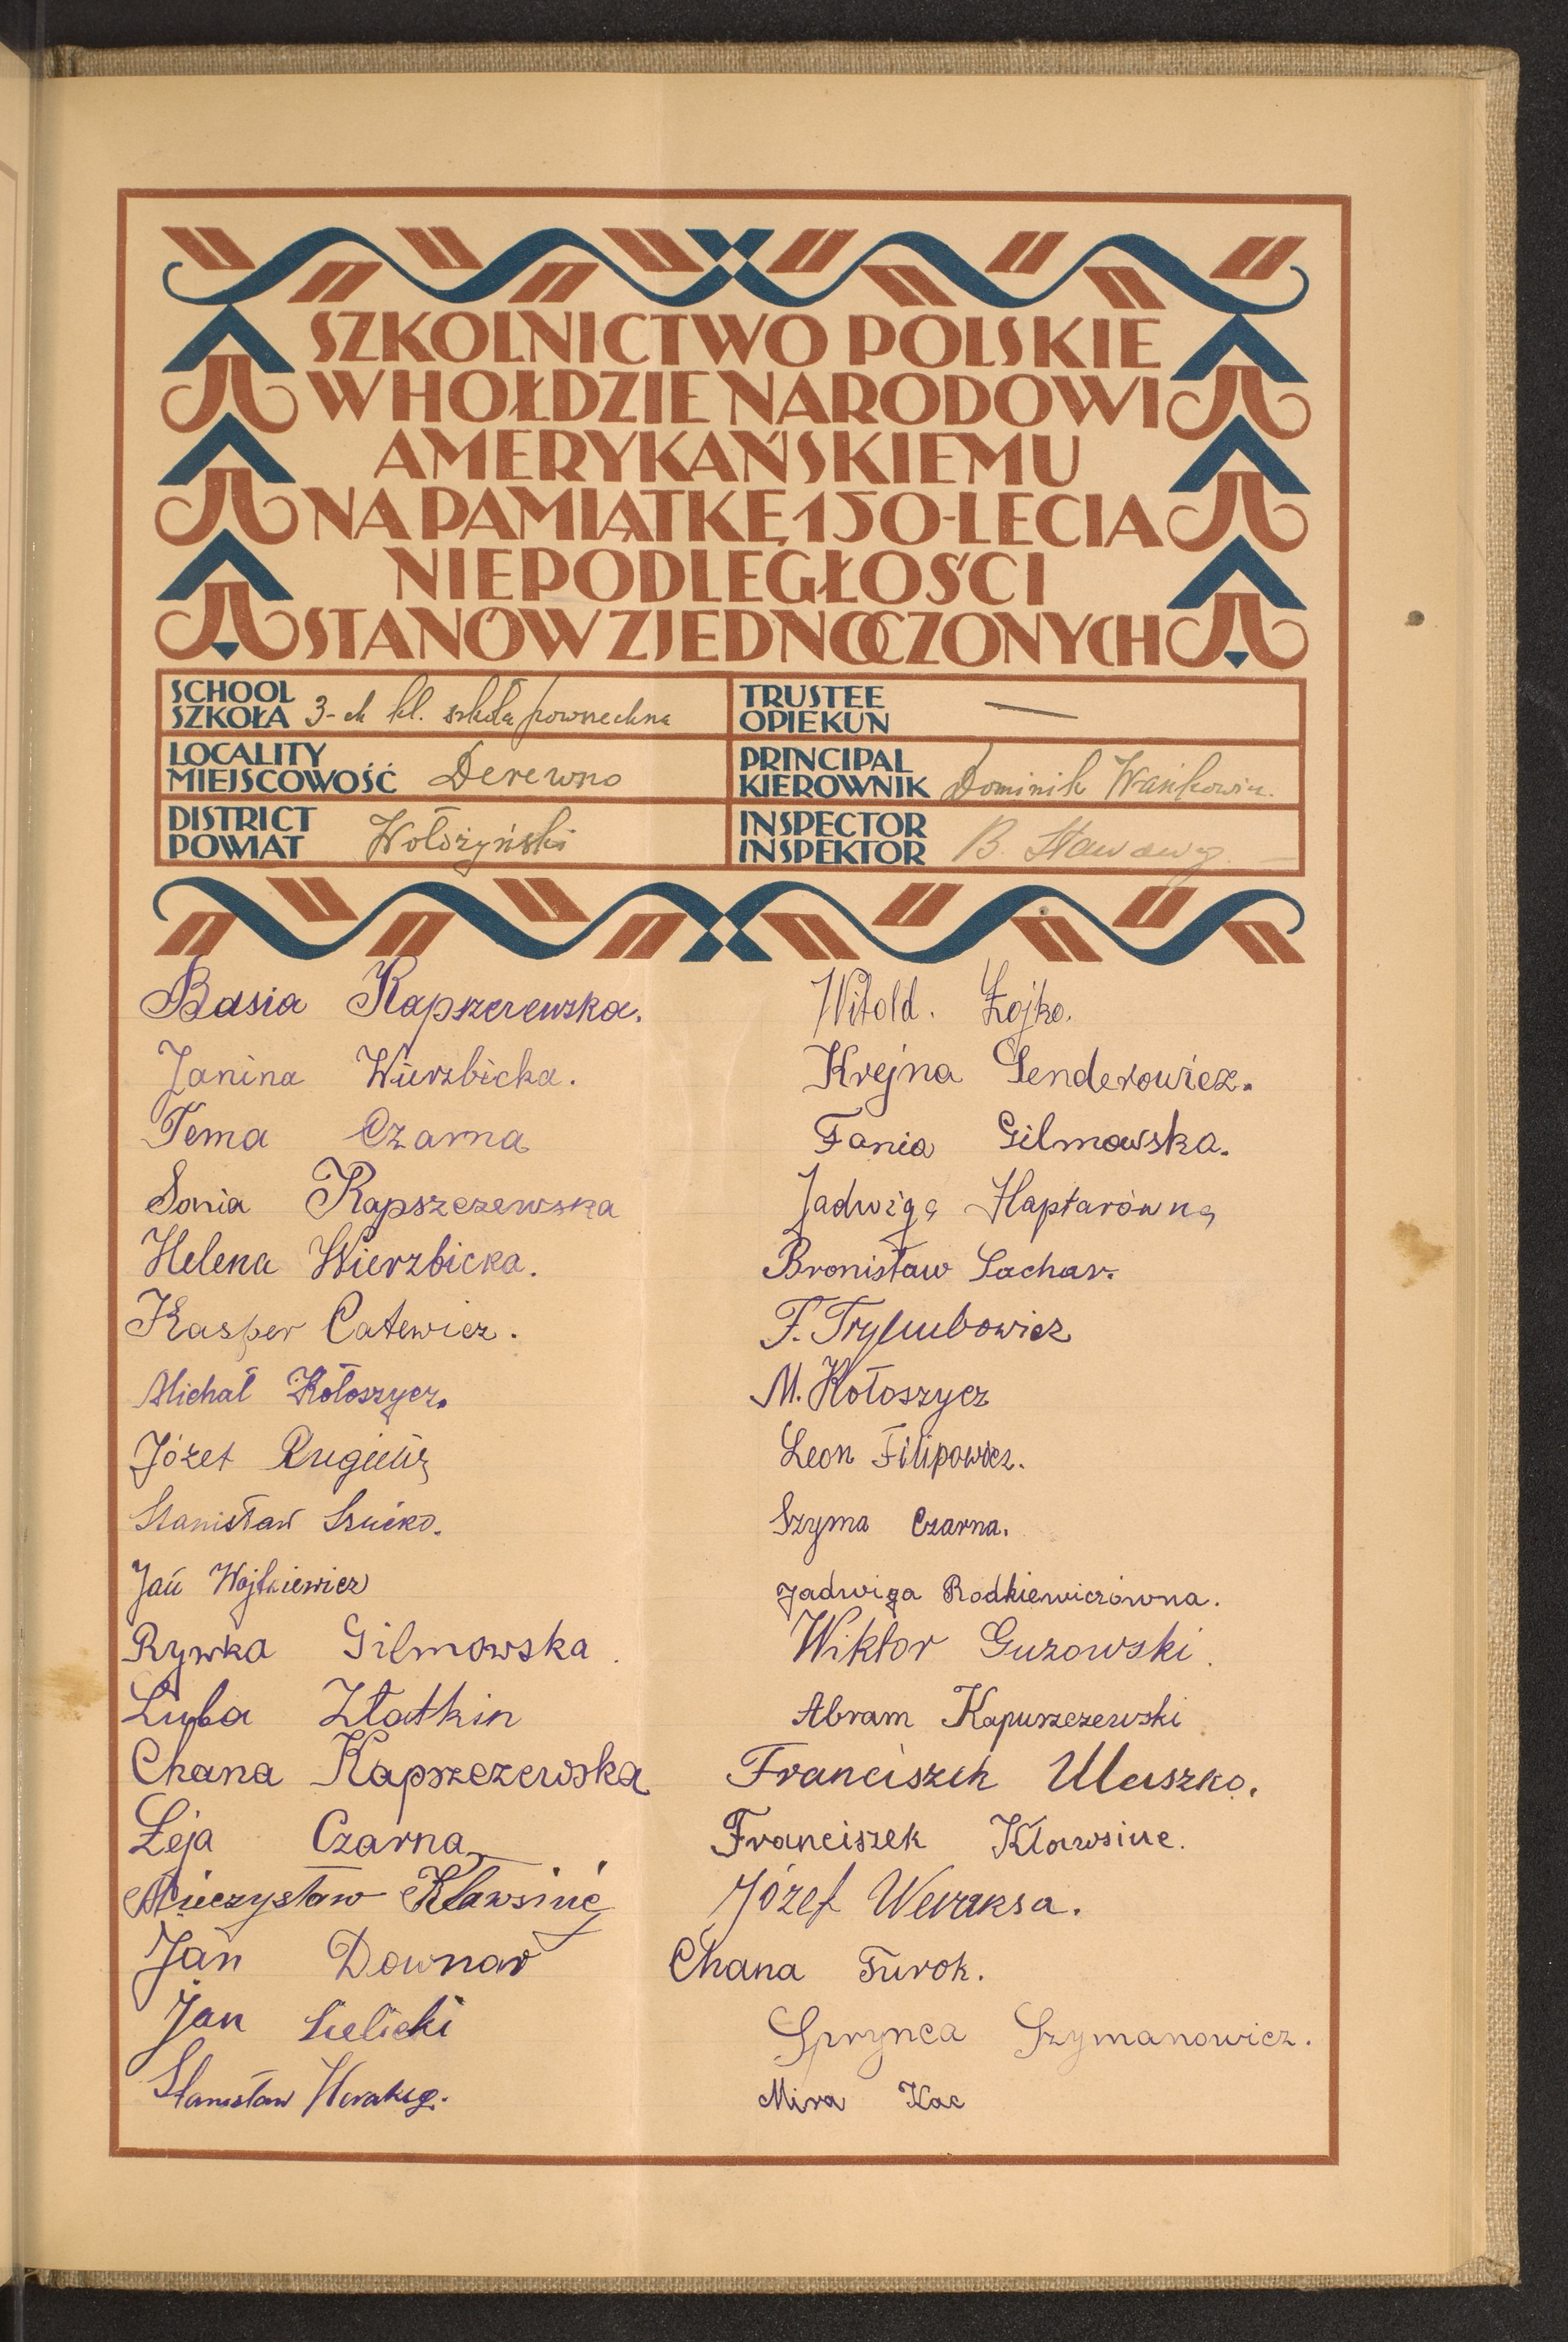 SZKOLNICTWO POLSKIE
W HOŁDZIE NARODOWI
AMERYKAŃSKIEMU
NA PAMIĄTKĘ 150-LECIA
NIEPODLEGŁOŚCI
STANÓW ZJEDNOCZONYCH
SCHOOL
SZKOŁA 3-ch kl. szkoła powszechna
TRUSTEE
OPIEKUN —
LOCALITY
MIEJSCOWOŚĆ Derewno
PRINCIPAL
KIEROWNIK Dominik Wańkowicz.
DISTRICT
POWIAT Wołożyński
INSPECTOR
INSPEKTOR B.
Basia Kapszerewska.
Janina Wierzbicka.
Tema Czarna
Sonia Kapszczewska
Helena Wierzbicka.
Kasper Catewicz.
Michał Kołoszycz.
Józef
Stanisław Szućko.
Jan Wojtkiewicz
Rywka Gilmowska.
Luba Złatkin
Chana Kapszczewska
Leja Czarna
Mieczysław Kławsiuć
Jan Downar
Jan Sielicki
Stanisław
Witold. Łojko.
Krejna Senderowicz.
Fania Gilmowska.
Jadwiga Haptarówna
Bronisław Sachar.
F.
M. Kołoszycz
Leon Filipowicz.
Szyma Czarna.
Jadwiga Rodkiewiczówna.
Wiktor Guzowski.
Abram Kapuszczewski
Franciszek
Franciszek Kławsiuc.
Józef Weraksa.
Chana Turok.
Sprynca Szymanowicz.
Mira Kac